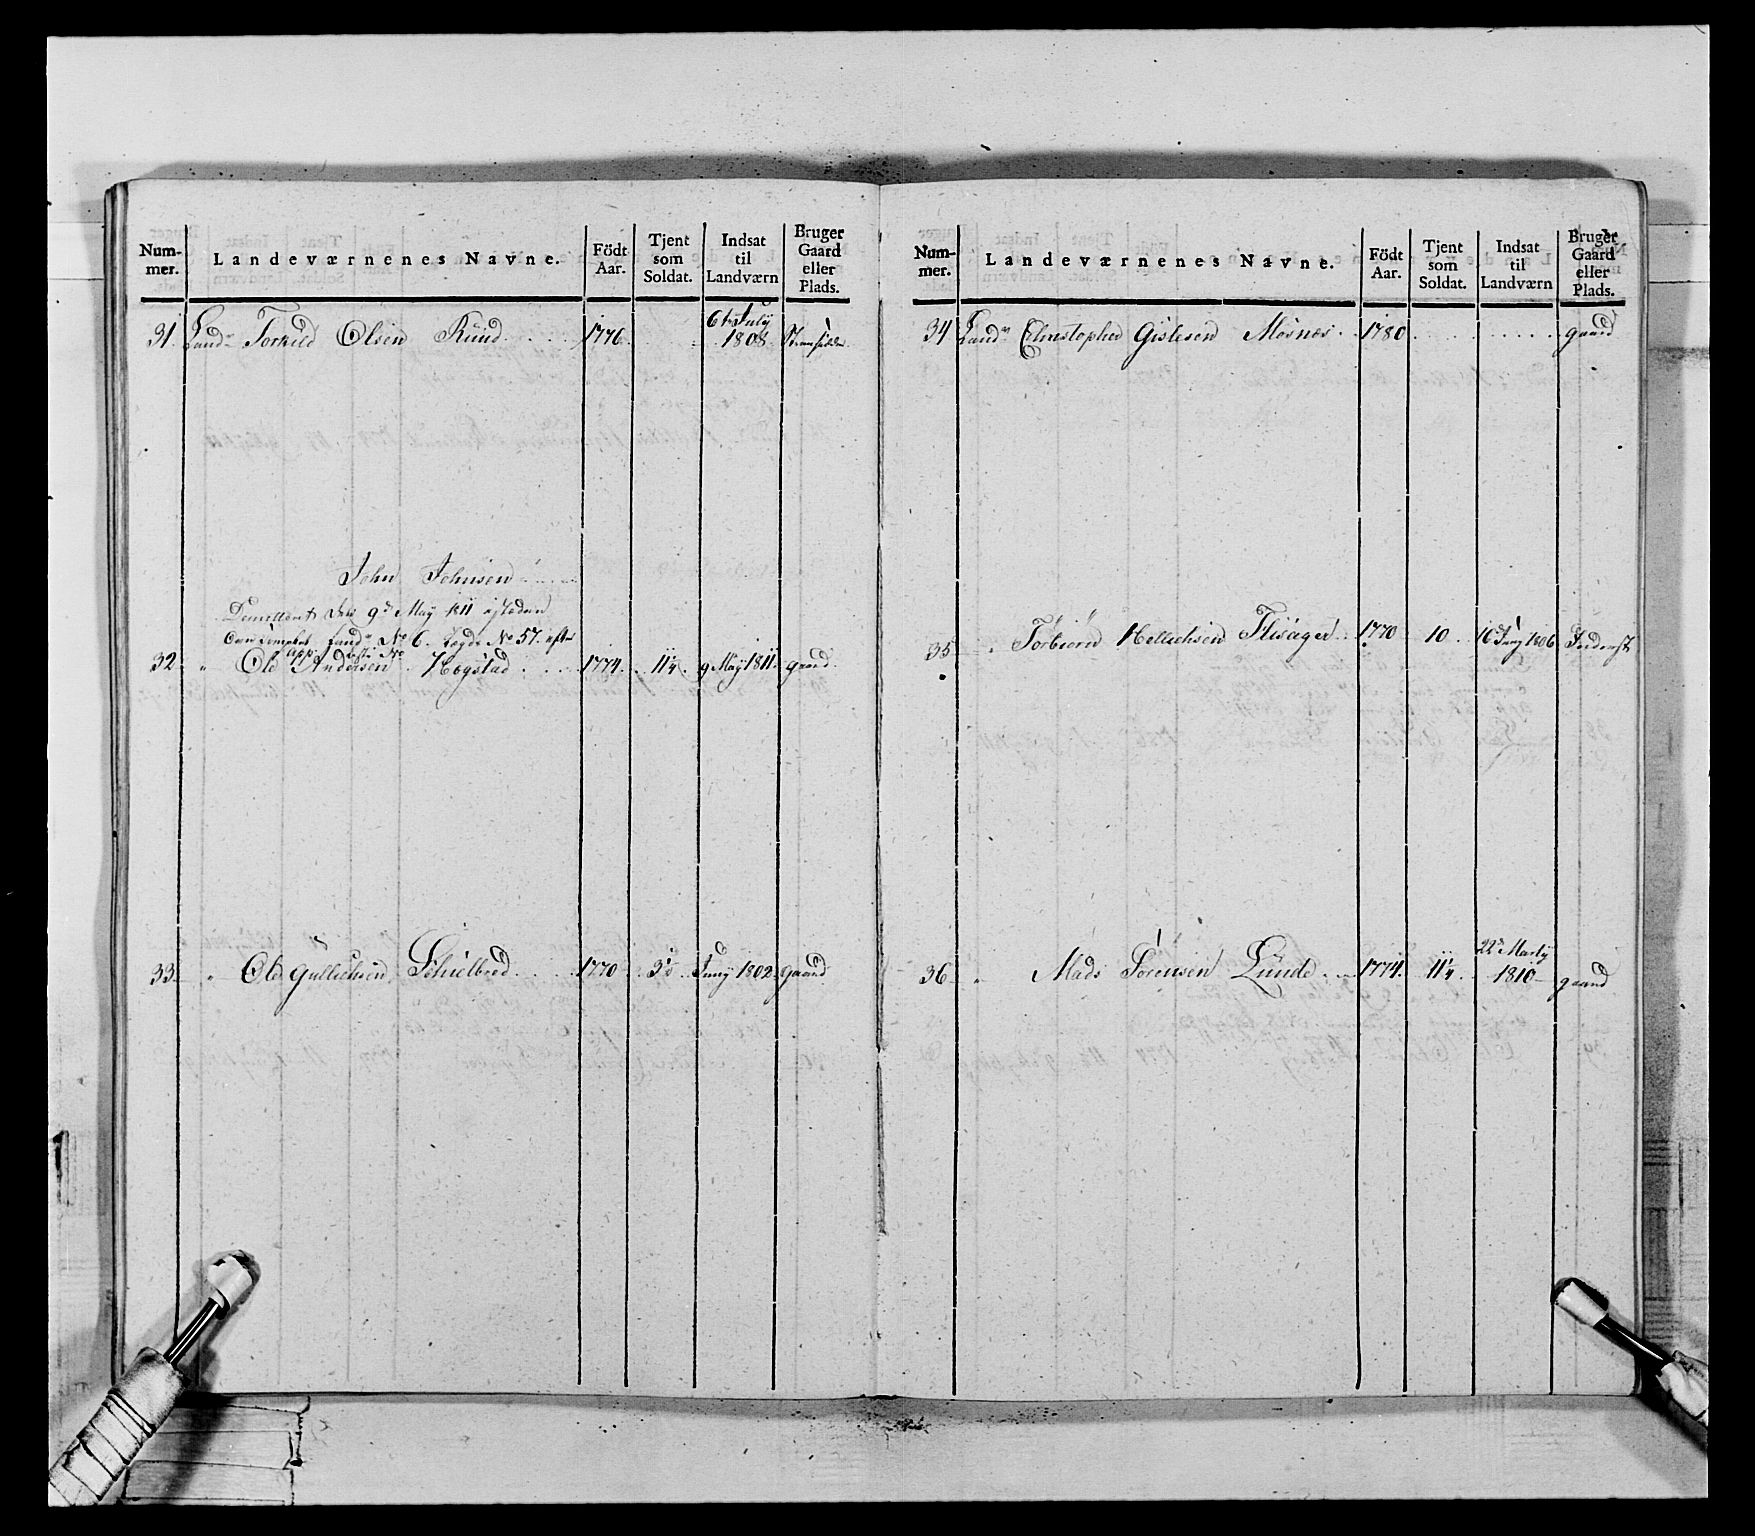 Num-
mer.
Landeværnenes Navne.
Födt
Aar.
Tjent
som
Soldat.
Indsat
til
Landværn
Bruger
Gaard
eller
Plads.
31. Land Torkild Olsen Ruud 1776. 6te July 1808.
John Johnsen
9de May 1811
Land No 6. Legds No 57. efter
32 " Ole Andersen Hogstad 1774. 11¼ 9 May 1811. gaard
33 " Ole Gullichsen Schielbred 1770 Juny 1802. gaard
Num-
mer.
Landeværnenes Navne.
Födt
Aar.
Tjent
som
Soldat.
Indsat
til
Landværn
Bruger
Gaard
eller
Plads.
34 Land Christopher Gislesen Mosnæs 1780 gaard
35 " Torbiørn Hellichsen Flisager 1770 10 Juny 1806
36 " Mads Sørensen Lunde 1774. 11¼ 22de Marty 1810 gaard